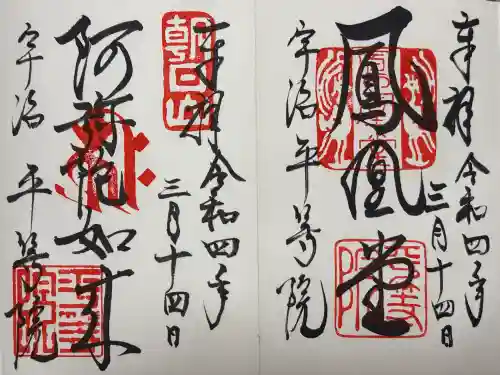 奉拝 令和四年
三月十四日
鳳凰堂
宇治 平等院
奉拝 令和四年
三月十四日
朝日山
阿弥陀如来
宇治 平等院